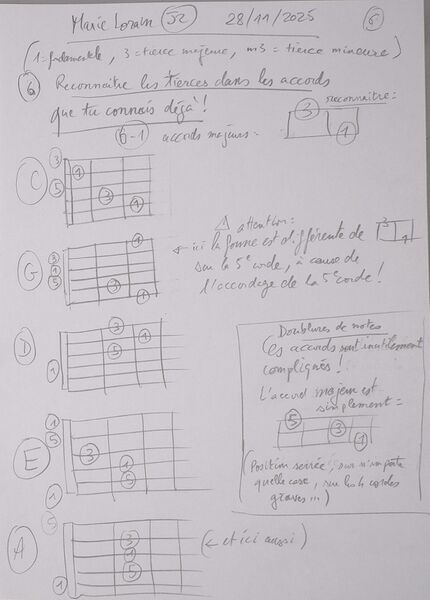 Marie Lorain 52 28/11/2025 6
(1=fondamentale, 3=tierce majeure, m3=tierce mineure)
6 Reconnaître les tierces dans les accords
que tu connais déjà !
reconnaître:
3
1
6-1 accords majeurs:
C
3
5
1
3
1
G
3
1
5
1
3
1
⚠ attention:
← ici la forme est différente de
3
1
sur la 5e corde, à cause de
l'accordage de la 5e corde !
D
3
1
5
1
Doublures de notes
Ces accords sont inutilement
compliqués !
L'accord majeur est
simplement =
5
3
1
(Position serrée, sur n'importe
quelle case, sur les 4 cordes
graves...)
E
1
5
3
1
5
1
A
5
3
1
5
1
(← et ici aussi)